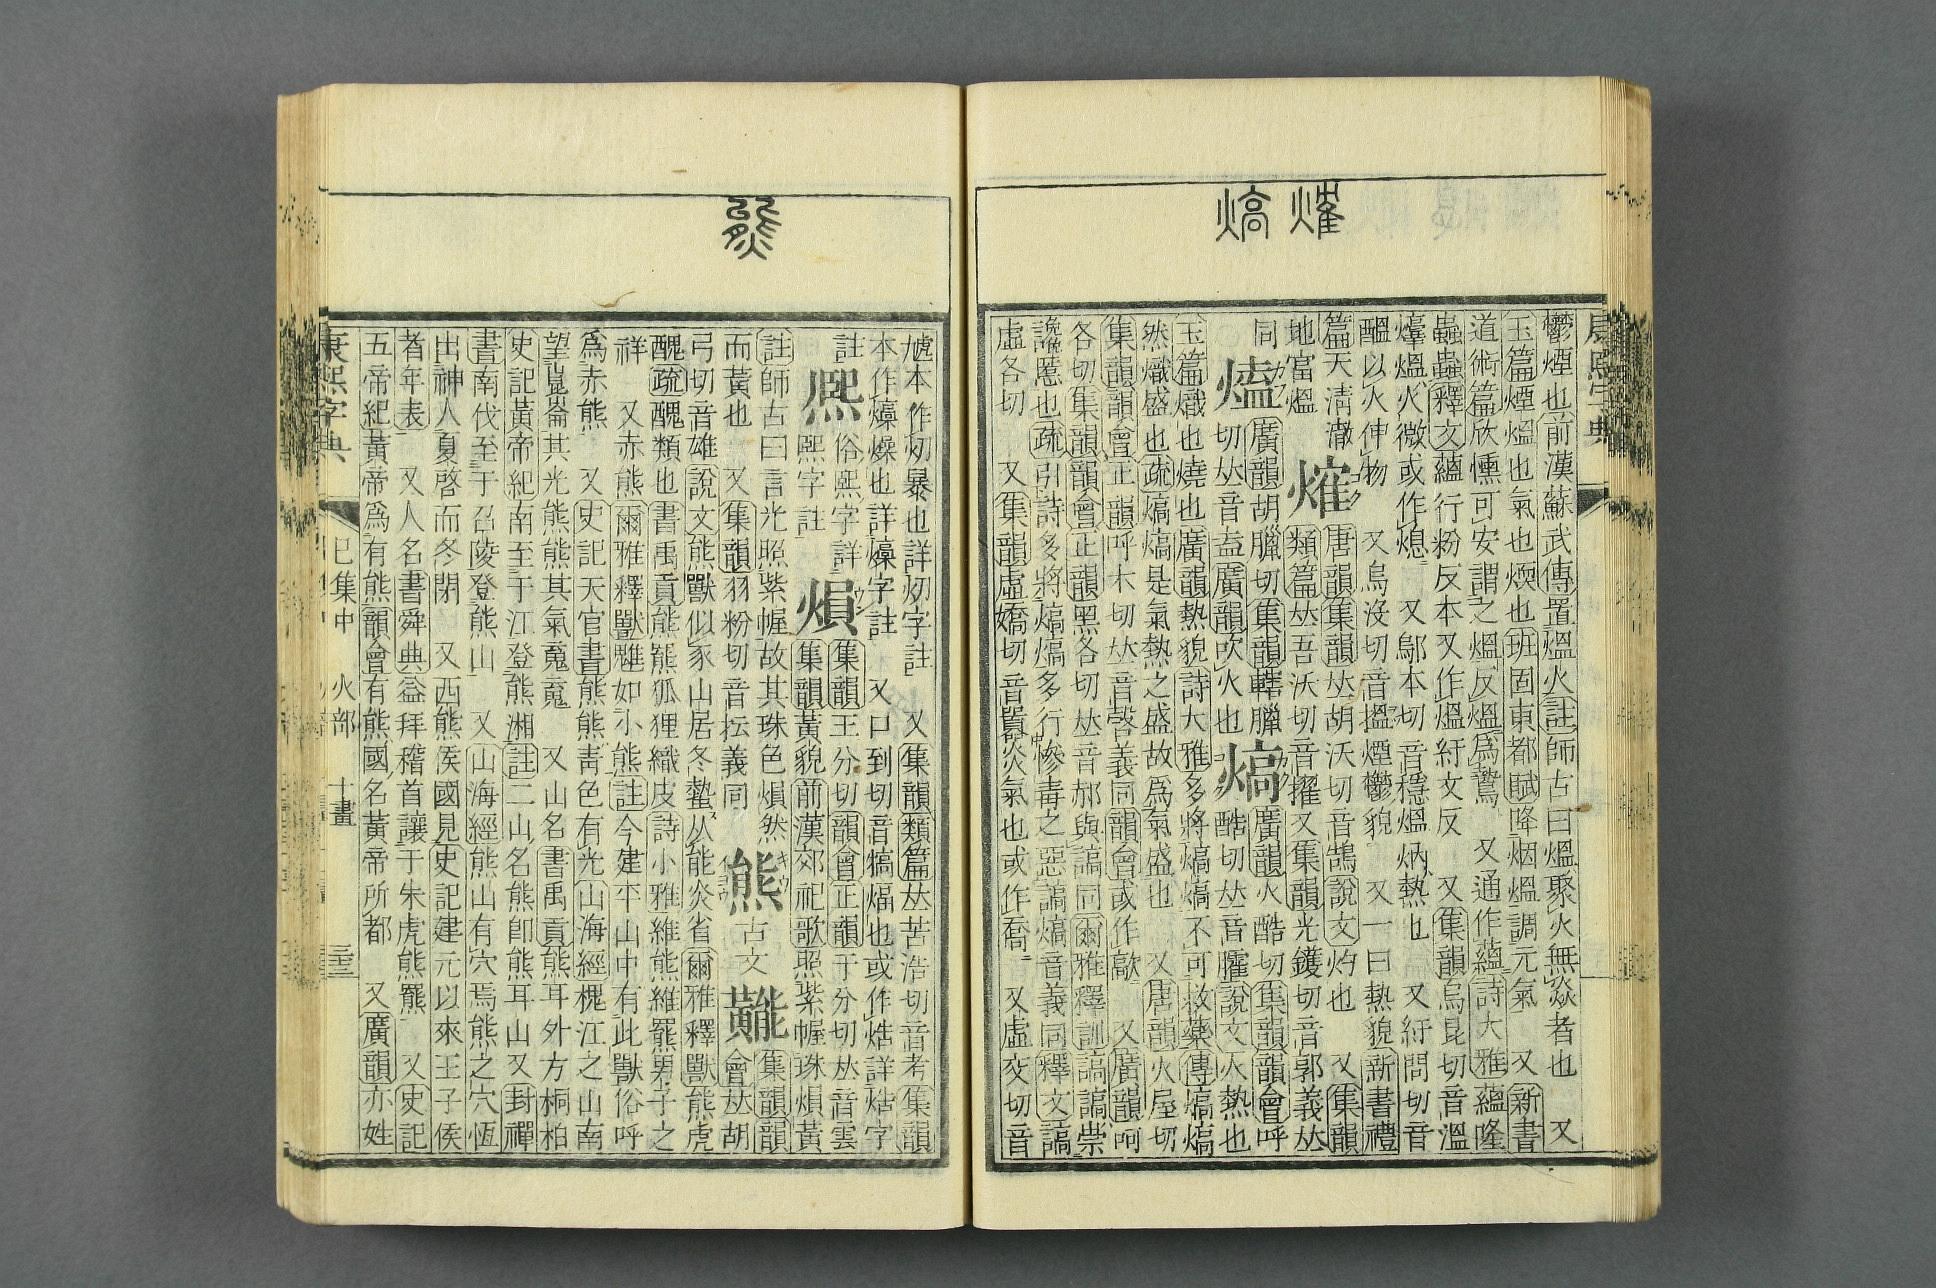 康熙字典
燿熇
鬱煙也前漢蘇武傳置熅火註師古曰熅聚火無焱者也 又
玉篇煙熅也氣也煗也班固東都賦降烟熅調元氣 又新書
道術篇欣懂可安謂之熅反熅爲鷙 又通作蘊詩大雅蘊隆
蟲蟲釋文蘊行粉反本又作熅紆文反 又集韻烏昆切音溫
熅火微或作熄 又鄔本切音穩熅炳熱也 又紆問切音
醞以火伸物 又烏沒切音搵煙鬱貌 又一曰熱貌新書禮
篇天清澈
地富熅
熦
唐韻集韻𠀤胡沃切音鵠說文灼也 又集韻
類篇𠀤吾沃切音擢又集韻光鑊切音郭義𠀤
同
熆
廣韻胡臘切集韻轄臘
切𠀤音盍廣韻吹火也
熇
廣韻火酷切集韻韻會呼
酷切𠀤音臛說文火熱也
玉篇熾也燒也廣韻熱貌詩大雅多將熇熇不可救藥傳熇熇
然熾盛也疏熇熇是氣熱之盛故爲氣盛也 又唐韻火屋切
集韻韻會正韻呼木切𠀤音嗀義同韻會或作歊 又廣韻呵
各切集韻韻會正韻黑各切𠀤音郝與謞同爾雅釋訓謞謞崇
讒慝也疏引詩多將熇熇多行慘毒之惡謞熇音義同釋文謞
虛各切 又集韻虛嬌切音囂炎氣也或作 又虛交切音
虓本作暴也詳字註 又集韻類篇𠀤苦浩切音考集韻
本作燺燥也詳燺字註 又口到切音犒熇也或作焅詳焅字
註
熈
俗熙字詳
熙字註
熉
集韻王分切韻會正韻于分切𠀤音雲
集韻黃貌前漢郊祀歌照紫幄珠熉黃
註師古曰言光照紫幄故其珠色熉然
而黃也 又集韻羽粉切音抎義同
熊
古文
集韻韻
會𠀤胡
弓切音雄說文熊獸似豕山居冬蟄从能炎省爾雅釋獸熊虎
醜疏醜類也書禹貢熊羆狐狸織皮詩小雅維熊維羆男子之
祥 又赤熊爾雅釋獸魋如小熊註今建平山中有此獸俗呼
爲赤熊 又史記天官書熊熊靑色有光山海經槐江之山南
望崑崙其光熊熊其氣魂魂 又山名書禹貢熊耳外方桐柏
史記黃帝紀南至于江登熊湘註二山名熊卽熊耳山又封禪
書南伐至于召陵登熊山 又山海經熊山有穴焉熊之穴恆
出神人夏啓而冬閉 又西熊侯國見史記建元以來王子侯
者年表 又人名書舜典益拜稽首讓于朱虎熊羆 又史記
五帝紀黃帝爲有熊韻會有熊國名黃帝所都 又廣韻亦姓
康熙字典 巳集中 火部 十畫 三三